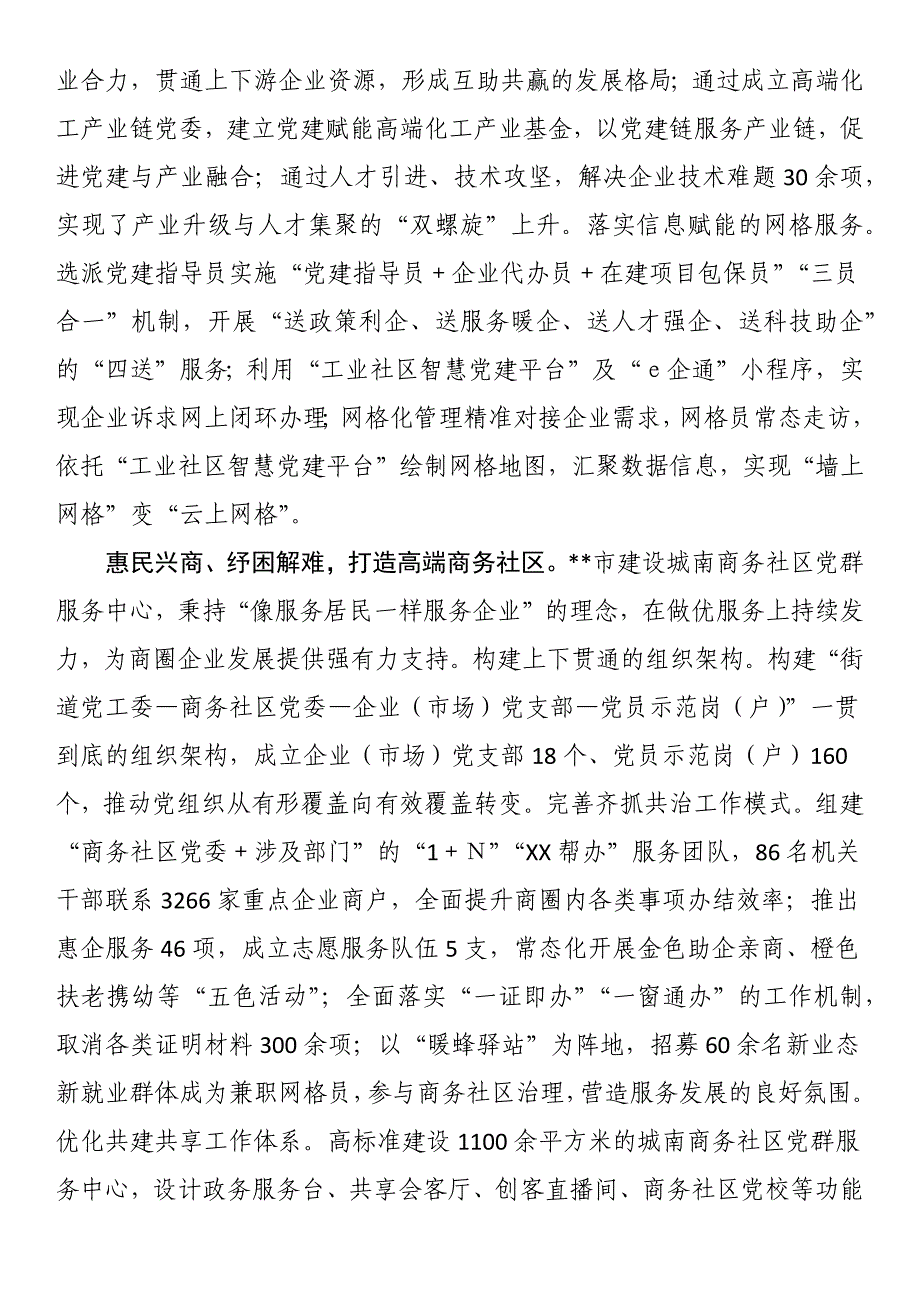 业合力，贯通上下游企业资源，形成互助共赢的发展格局；通过成立高端化
工产业链党委，建立党建赋能高端化工产业基金，以党建链服务产业链，促
进党建与产业融合；通过人才引进、技术攻坚，解决企业技术难题 30 余项，
实现了产业升级与人才集聚的“双螺旋”上升。落实信息赋能的网格服务。
选派党建指导员实施“党建指导员＋企业代办员＋在建项目包保员”“三员
合一”机制，开展“送政策利企、送服务暖企、送人才强企、送科技助企”
的“四送”服务；利用“工业社区智慧党建平台”及“ｅ企通”小程序，实
现企业诉求网上闭环办理；网格化管理精准对接企业需求，网格员常态走访，
依托“工业社区智慧党建平台”绘制网格地图，汇聚数据信息，实现“墙上
网格”变“云上网格”。
惠民兴商、纾困解难，打造高端商务社区。**市建设城南商务社区党群
服务中心，秉持“像服务居民一样服务企业”的理念，在做优服务上持续发
力，为商圈企业发展提供强有力支持。构建上下贯通的组织架构。构建“街
道党工委—商务社区党委—企业（市场）党支部—党员示范岗（户）”一贯
到底的组织架构，成立企业（市场）党支部 18 个、党员示范岗（户）160
个，推动党组织从有形覆盖向有效覆盖转变。完善齐抓共治工作模式。组建
“商务社区党委＋涉及部门”的“1＋Ｎ”“XX 帮办”服务团队，86 名机关
干部联系 3266 家重点企业商户，全面提升商圈内各类事项办结效率；推出
惠企服务 46 项，成立志愿服务队伍 5 支，常态化开展金色助企亲商、橙色
扶老携幼等“五色活动”；全面落实“一证即办”“一窗通办”的工作机制，
取消各类证明材料 300 余项；以“暖蜂驿站”为阵地，招募 60 余名新业态
新就业群体成为兼职网格员，参与商务社区治理，营造服务发展的良好氛围。
优化共建共享工作体系。高标准建设 1100 余平方米的城南商务社区党群服
务中心，设计政务服务台、共享会客厅、创客直播间、商务社区党校等功能